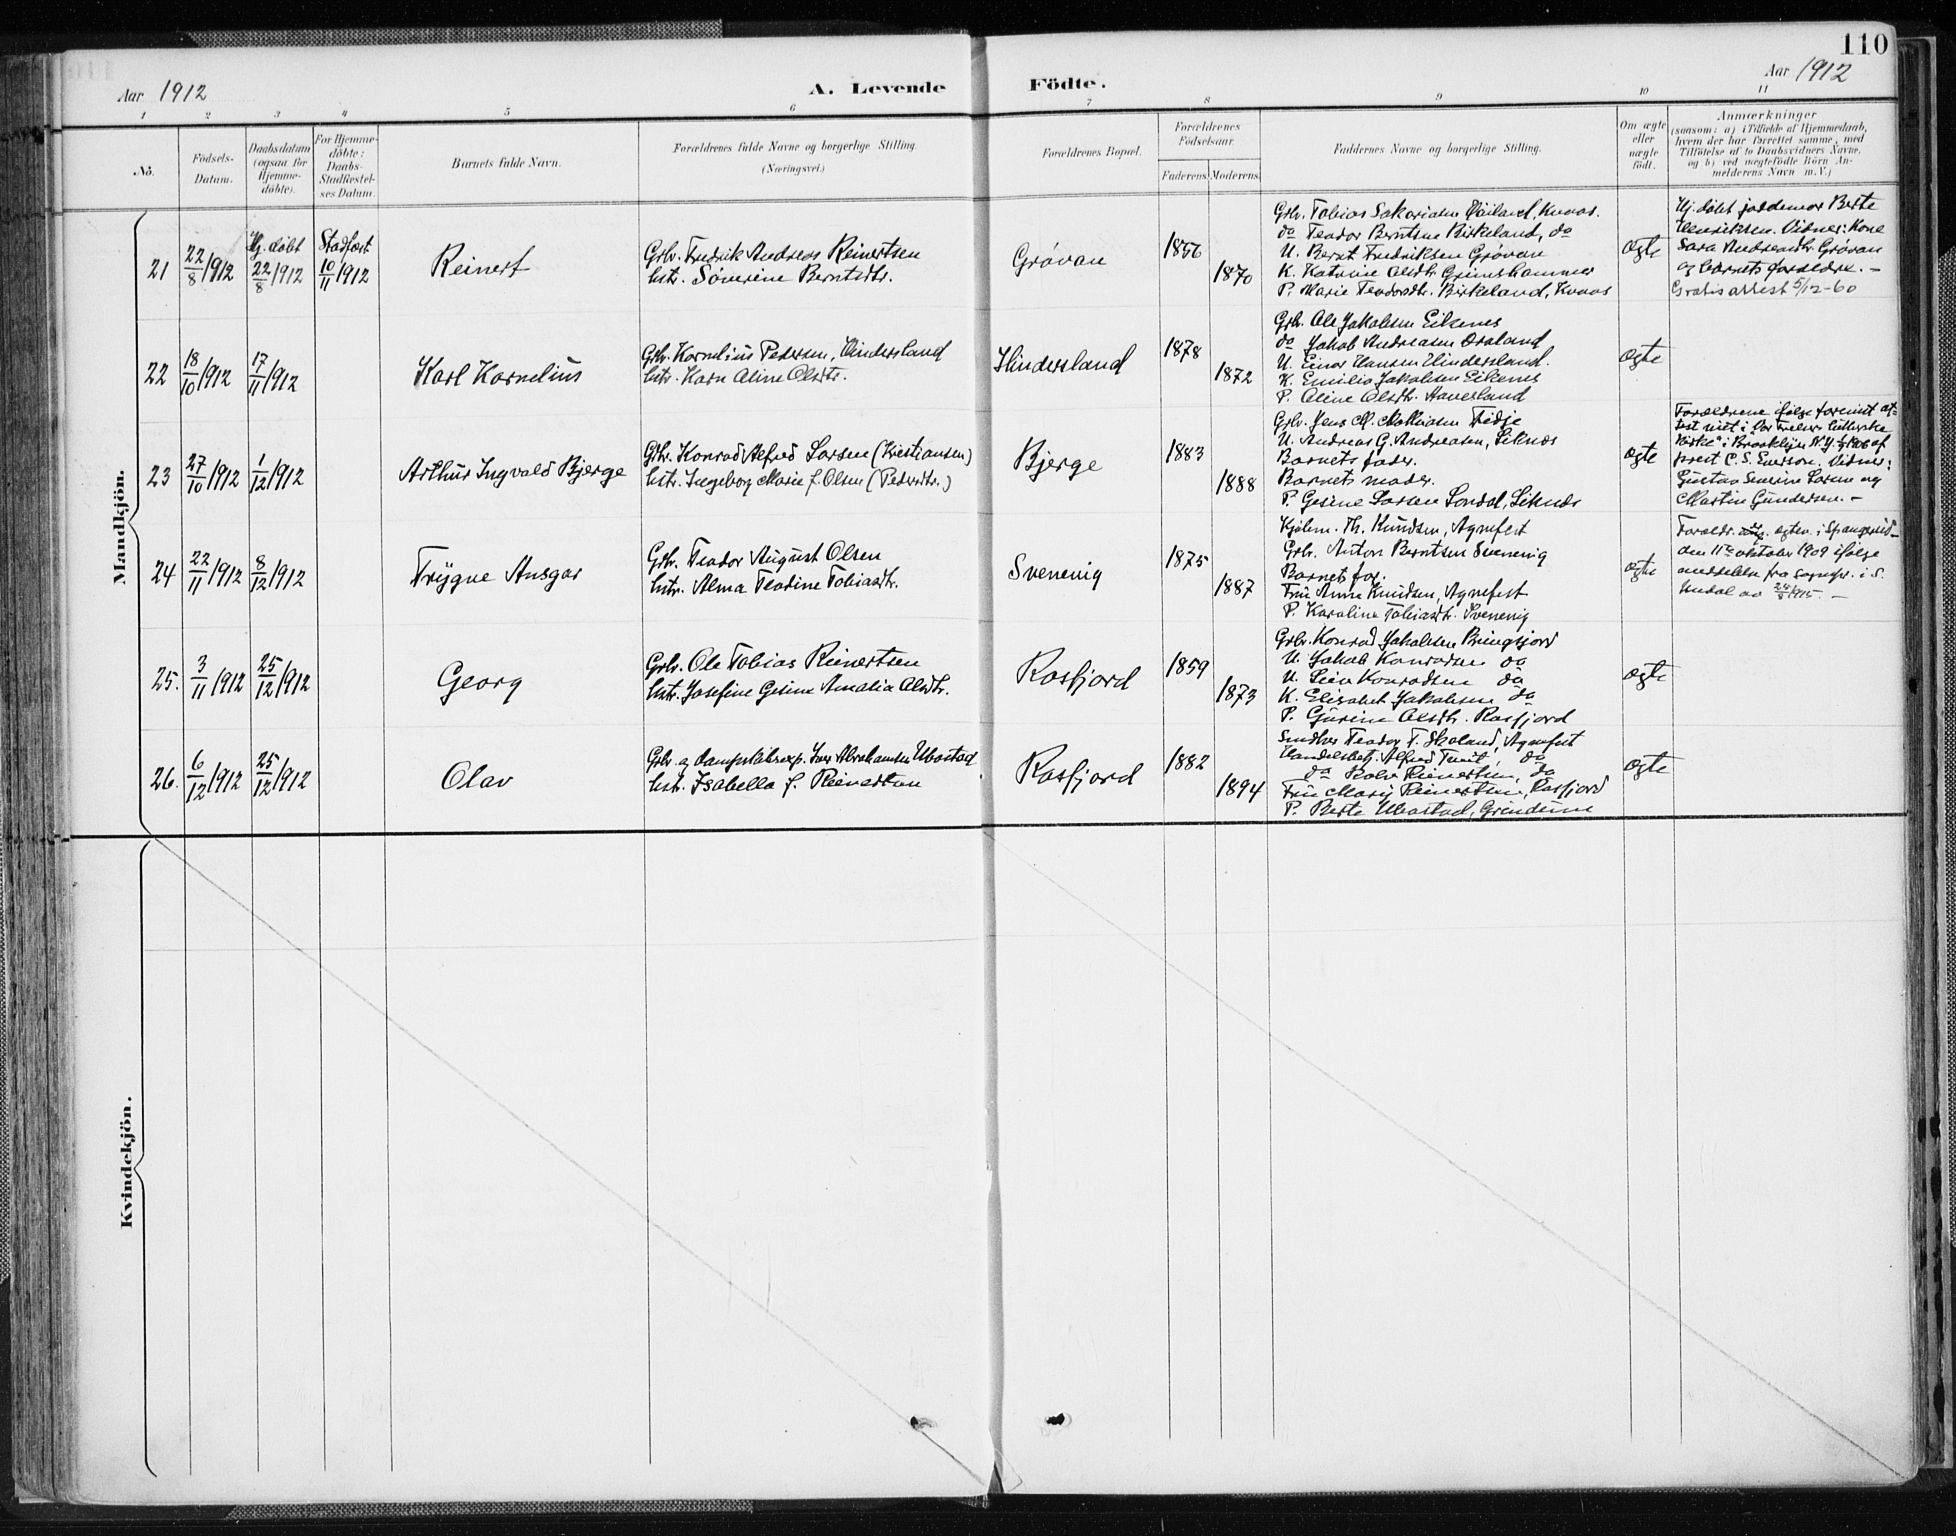 110
Aar 1912
A. Levende Födte.
Aar 1912
1 2 3 4 5 6 7 8 9 10 11
No.
Födsels-Datum.
Daabsdatum (ogsaa for Hjemme-döbte).
For Hjemme-döbte: Daabs-Stadfæstel-ses Datum.
Barnets fulde Navn.
Forældrenes fulde Navne og borgerlige Stilling.
(Næringsvei.)
Forældrenes Bopæl.
Forældrenes Födselsaar.
Faderens. Moderens.
Faddernes Navne og borgerlige Stilling.
Om ægte eller uægte födt.
Anmærkninger
(saasom: a) i Tilfælde af Hjemmedaab,
hvem der har forrettet samme, med
Tilföielse af to Daabsvidners Navne,
og b) ved uægtefödte Börn An-
melderens Navn m. V.)
Mandkjön.
21 22/8 1912 Hj. døbt 22/8 1912 Stadfæst 10/11 1912 Reinert
Grbr. Fredrik Andreas Reinertsen
hstr. Søverine Berntsdtr.
Grøvan 1856 1870
Grbr. Tobias Sakariasen Kvaas.
do Teodor Berntsen Birkeland, do
U. Bernt Fredriksen Grøvan
K. Katrine Olsdtr. Grimshammer
P. Marie Teodorsdtr. Birkeland, Kvaas
ægte
Hj. døbt jordemor Berte
Henriksen. Vidner: Kone
Sara Andreasdtr. Grøvan
og barnets forældre. -
Gratis attest 5/12-60
22 18/10 1912 17/11 1912 Karl Kornelius
Grbr. Kornelius Pedersen, Hindersland
hstr. Karn Aline Olsdtr.
Hindersland 1878 1872
Grbr. Ole Jakobsen Eikenes
do Jakob Andreasen
U. Einar Hansen Hindersland.
K. Emilie Jakobsen Eikenes
P. Aline Olsdtr. Haversland
ægte
23 27/10 1912 1/12 1912 Arthur Ingvald Bjerge
Grbr. Konrad Alfred Larsen (Kristiansen)
hstr. Ingeborg Marie f. Olsen (Pedersdtr.)
Bjerge 1883 1888
Grbr. Jens M. Mathiasen Tidje
U. Andreas G. Andreasen, Liknes
Barnets fader.
Barnets moder.
P. Gesine Larsen Londal, Liknes
ægte
Forældrene ifølge forevist at-
test viet i Vor Frelsers lutherske
Kirke" i Brooklyn N.Y. 1906 af
prest C. S. Everson. Vidner:
Gustav Severin Larsen og
Martin Gundersen. -
24 22/11 1912 8/12 1912 Trygve Ansgar
Grbr. Teodor August Olsen
hstr. Alma Teodine Tobiasdtr.
Svenevig 1875 1887
Kjøbm. Th. Knudsen, Agnefest
Grbr. Anton Berntsen Svenevig
Barnets far.
Fru Anna Knudsen, Agnefest
P. Karoline Tobiasdtr. Svenevig
ægte
Foreldr. egtev. i Spangereid
den 11te oktober 1909 ifølge
meddelelse fra sognepr. i S.
Undal av 1915. -
25. 3/11 1912 25/12 1912 Georg
Grbr. Ole Tobias Reinertsen
hstr. Josefine Gesine Amalia Olsdtr.
Rosfjord 1859 1873
Grbr. Konrad Jakobsen Bringsjord
U. Jakob Konradsen do
U. Konradsen do
K. Elisabet Jakobsen do
P. Gurine Olsdtr. Rosfjord
ægte
26. 6/12 1912 25/12 1912 Olav
Grbr. og dampskibsexp. Iver Abrahamsen Ubostad
hst. Isabella f. Reinertsen
Rosfjord 1882 1894
Teodor T. Skoland, Agnefest
Handelsbetj. Alfred do
do Reinertsen, do
Fru Mary Reinertsen, Rosfjord
P. Berte Ubostad, Grindum
ægte
Kvindekjön.